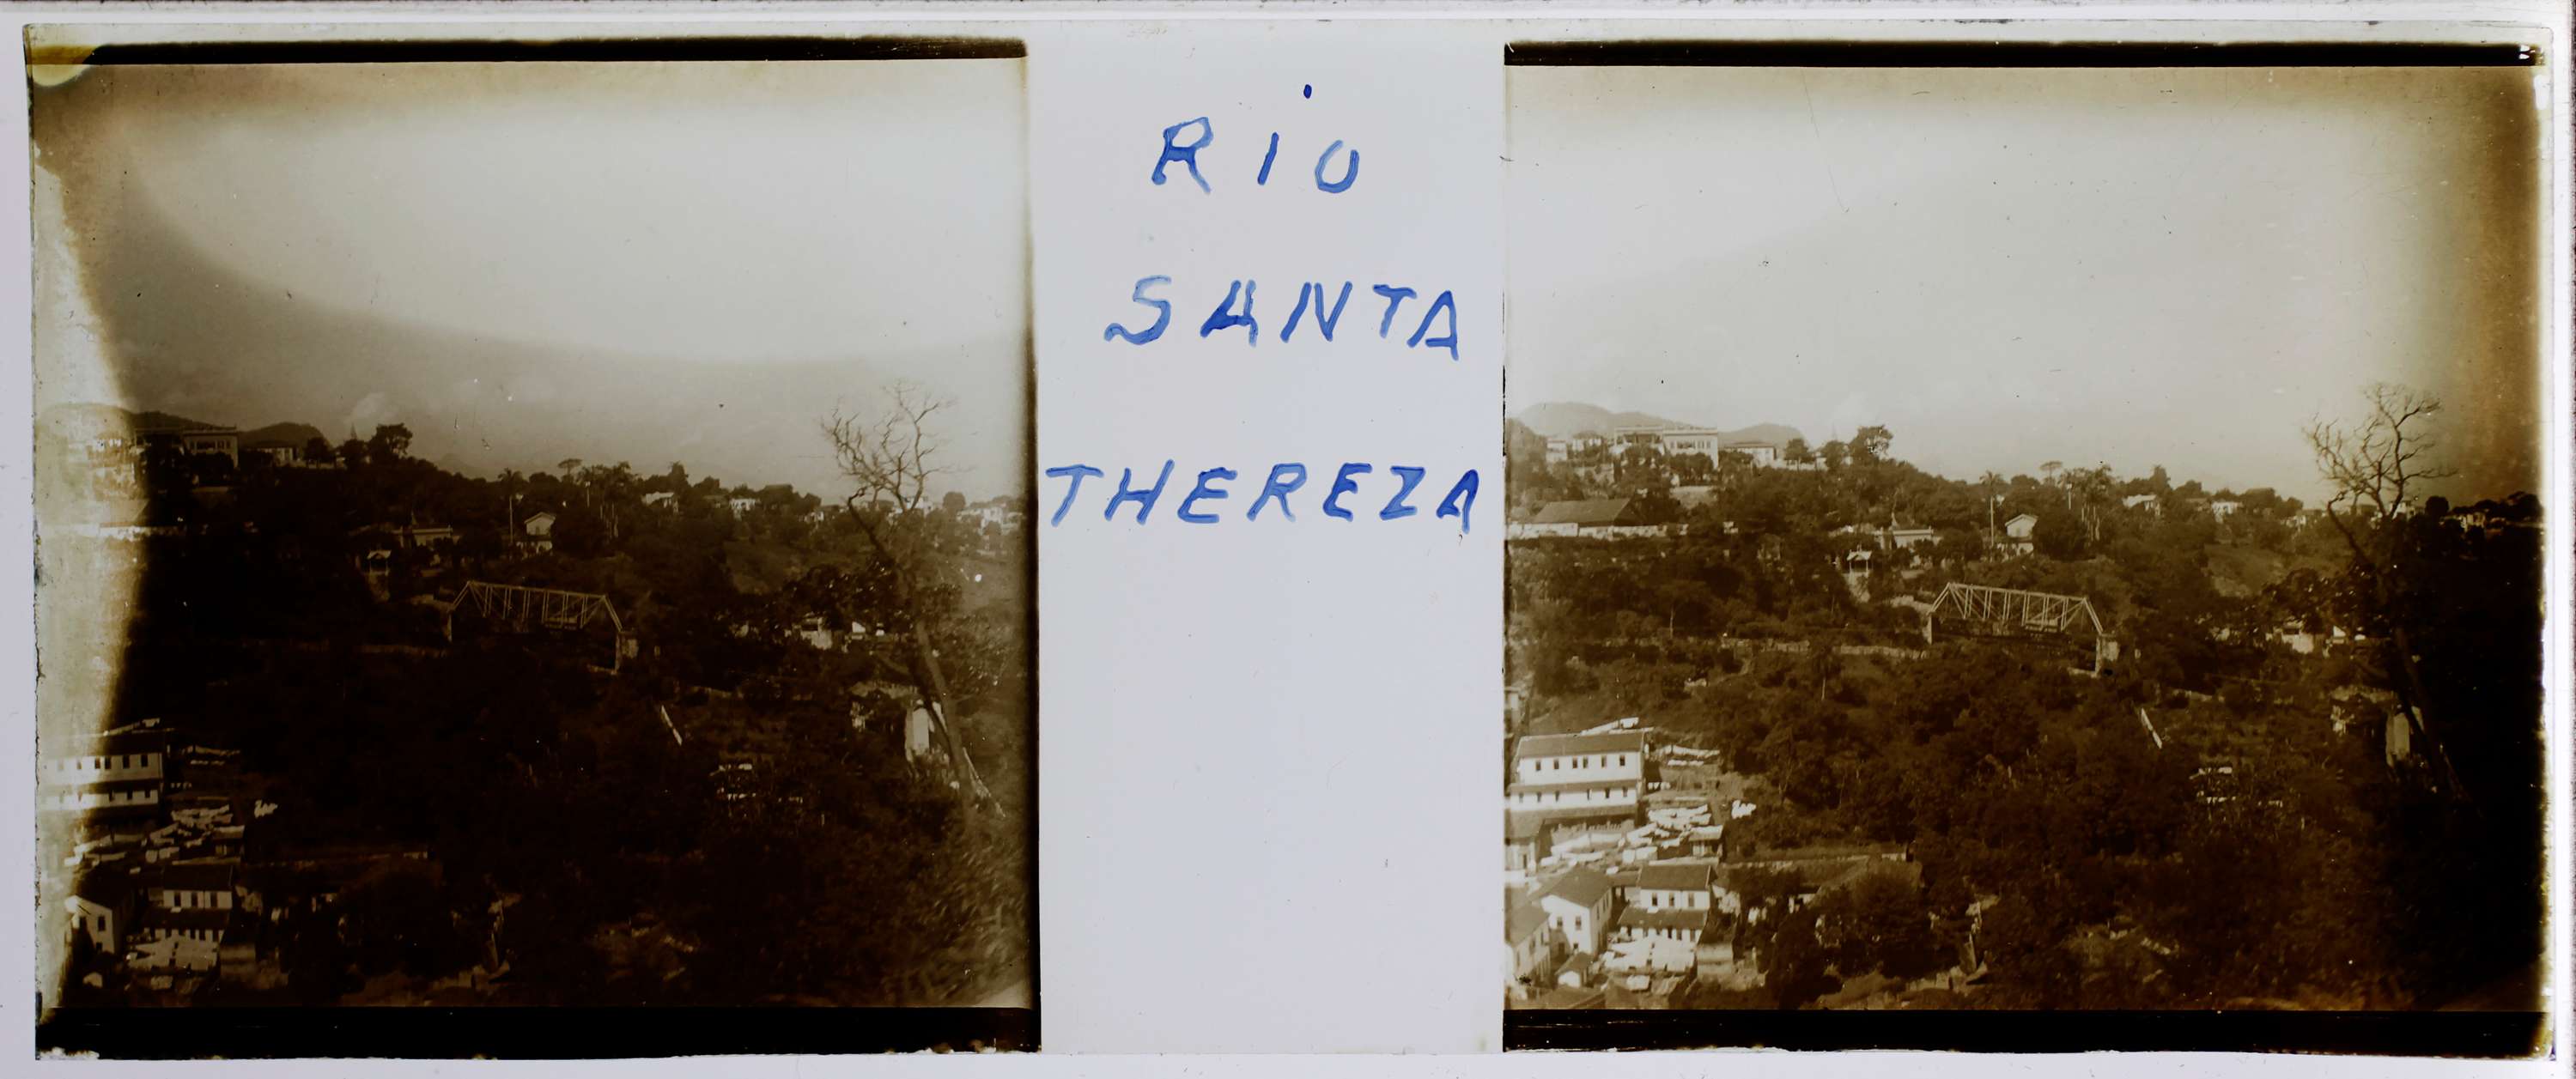 RiO
SANTA
THEREZA